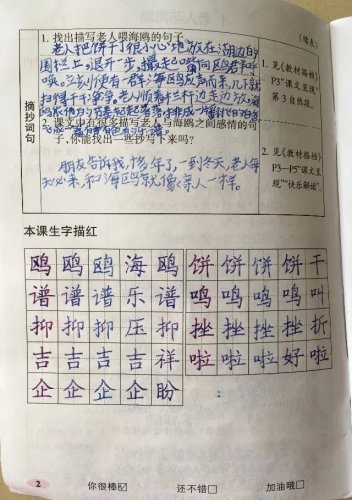 (续表)
摘抄词句
1. 找出描写老人喂海鸥的句子。
老人把饼干很小心地放在湖边的
围栏上,退开一步,撮起嘴向鸥群呼
唤。立刻便有一群海鸥应声而来,几下就
扫得干干净净。老人顺着栏杆边走边放,海
鸥依他的节奏起起落落,排成一片翻飞的白色,
飞成一篇有声有色的乐谱。
2. 课文中有很多描写老人与海鸥之间感情的句
子,你能找出一些抄写下来吗?
朋友告诉我,十多年了,一到冬天,老人每
天必来,和海鸥就像亲人一样。
1. 见《教材搭档》
P3“课文呈现”
第3自然段。
2. 见《教材搭档》
P3—P5“课文呈
现”“快乐解读”。
本课生字描红
鸥 鸥 鸥 海 鸥 饼 饼 饼 饼 干
谱 谱 谱 乐 谱 鸣 鸣 鸣 鸣 叫
抑 抑 抑 压 抑 挫 挫 挫 挫 折
吉 吉 吉 吉 祥 啦 啦 啦 好 啦
企 企 企 企 盼
2
你很棒☑ 还不错□ 加油哦□